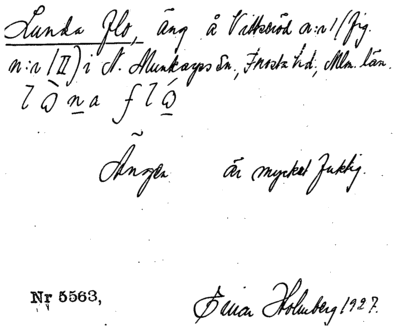 Lunda Flo, äng å Vittseröd n:r 1 (fig.
n:r III) i N. Munkarps sn, Frosta hd, Mlm. län.
Ängen är mycket fuktig.
Nr 5563, Einar Holmberg 1927.